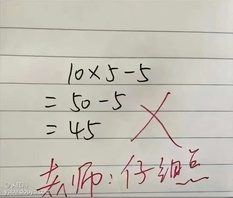 10×5-5
=50-5
=45
老师:仔细点